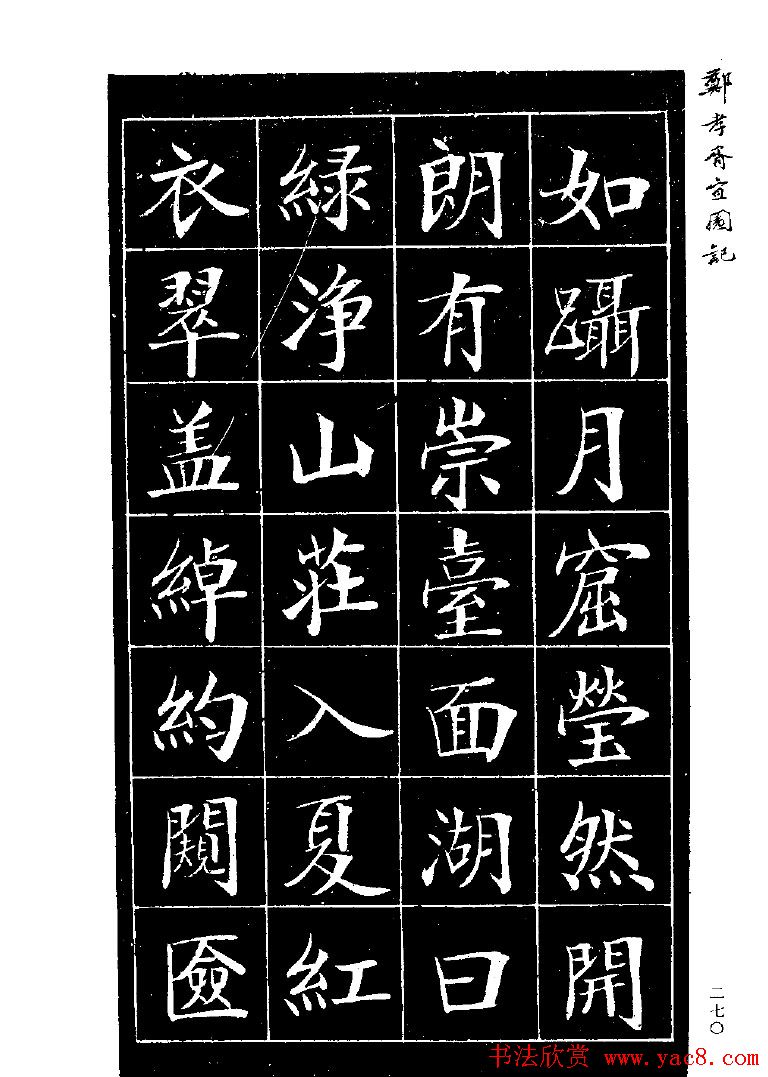 鄭孝胥宜園記
如躡月窟瑩然開
朗有崇臺面湖曰
緑浄山莊入夏紅
衣翠盖綽約闚匳
二七〇
书法欣赏 www.yac8.com